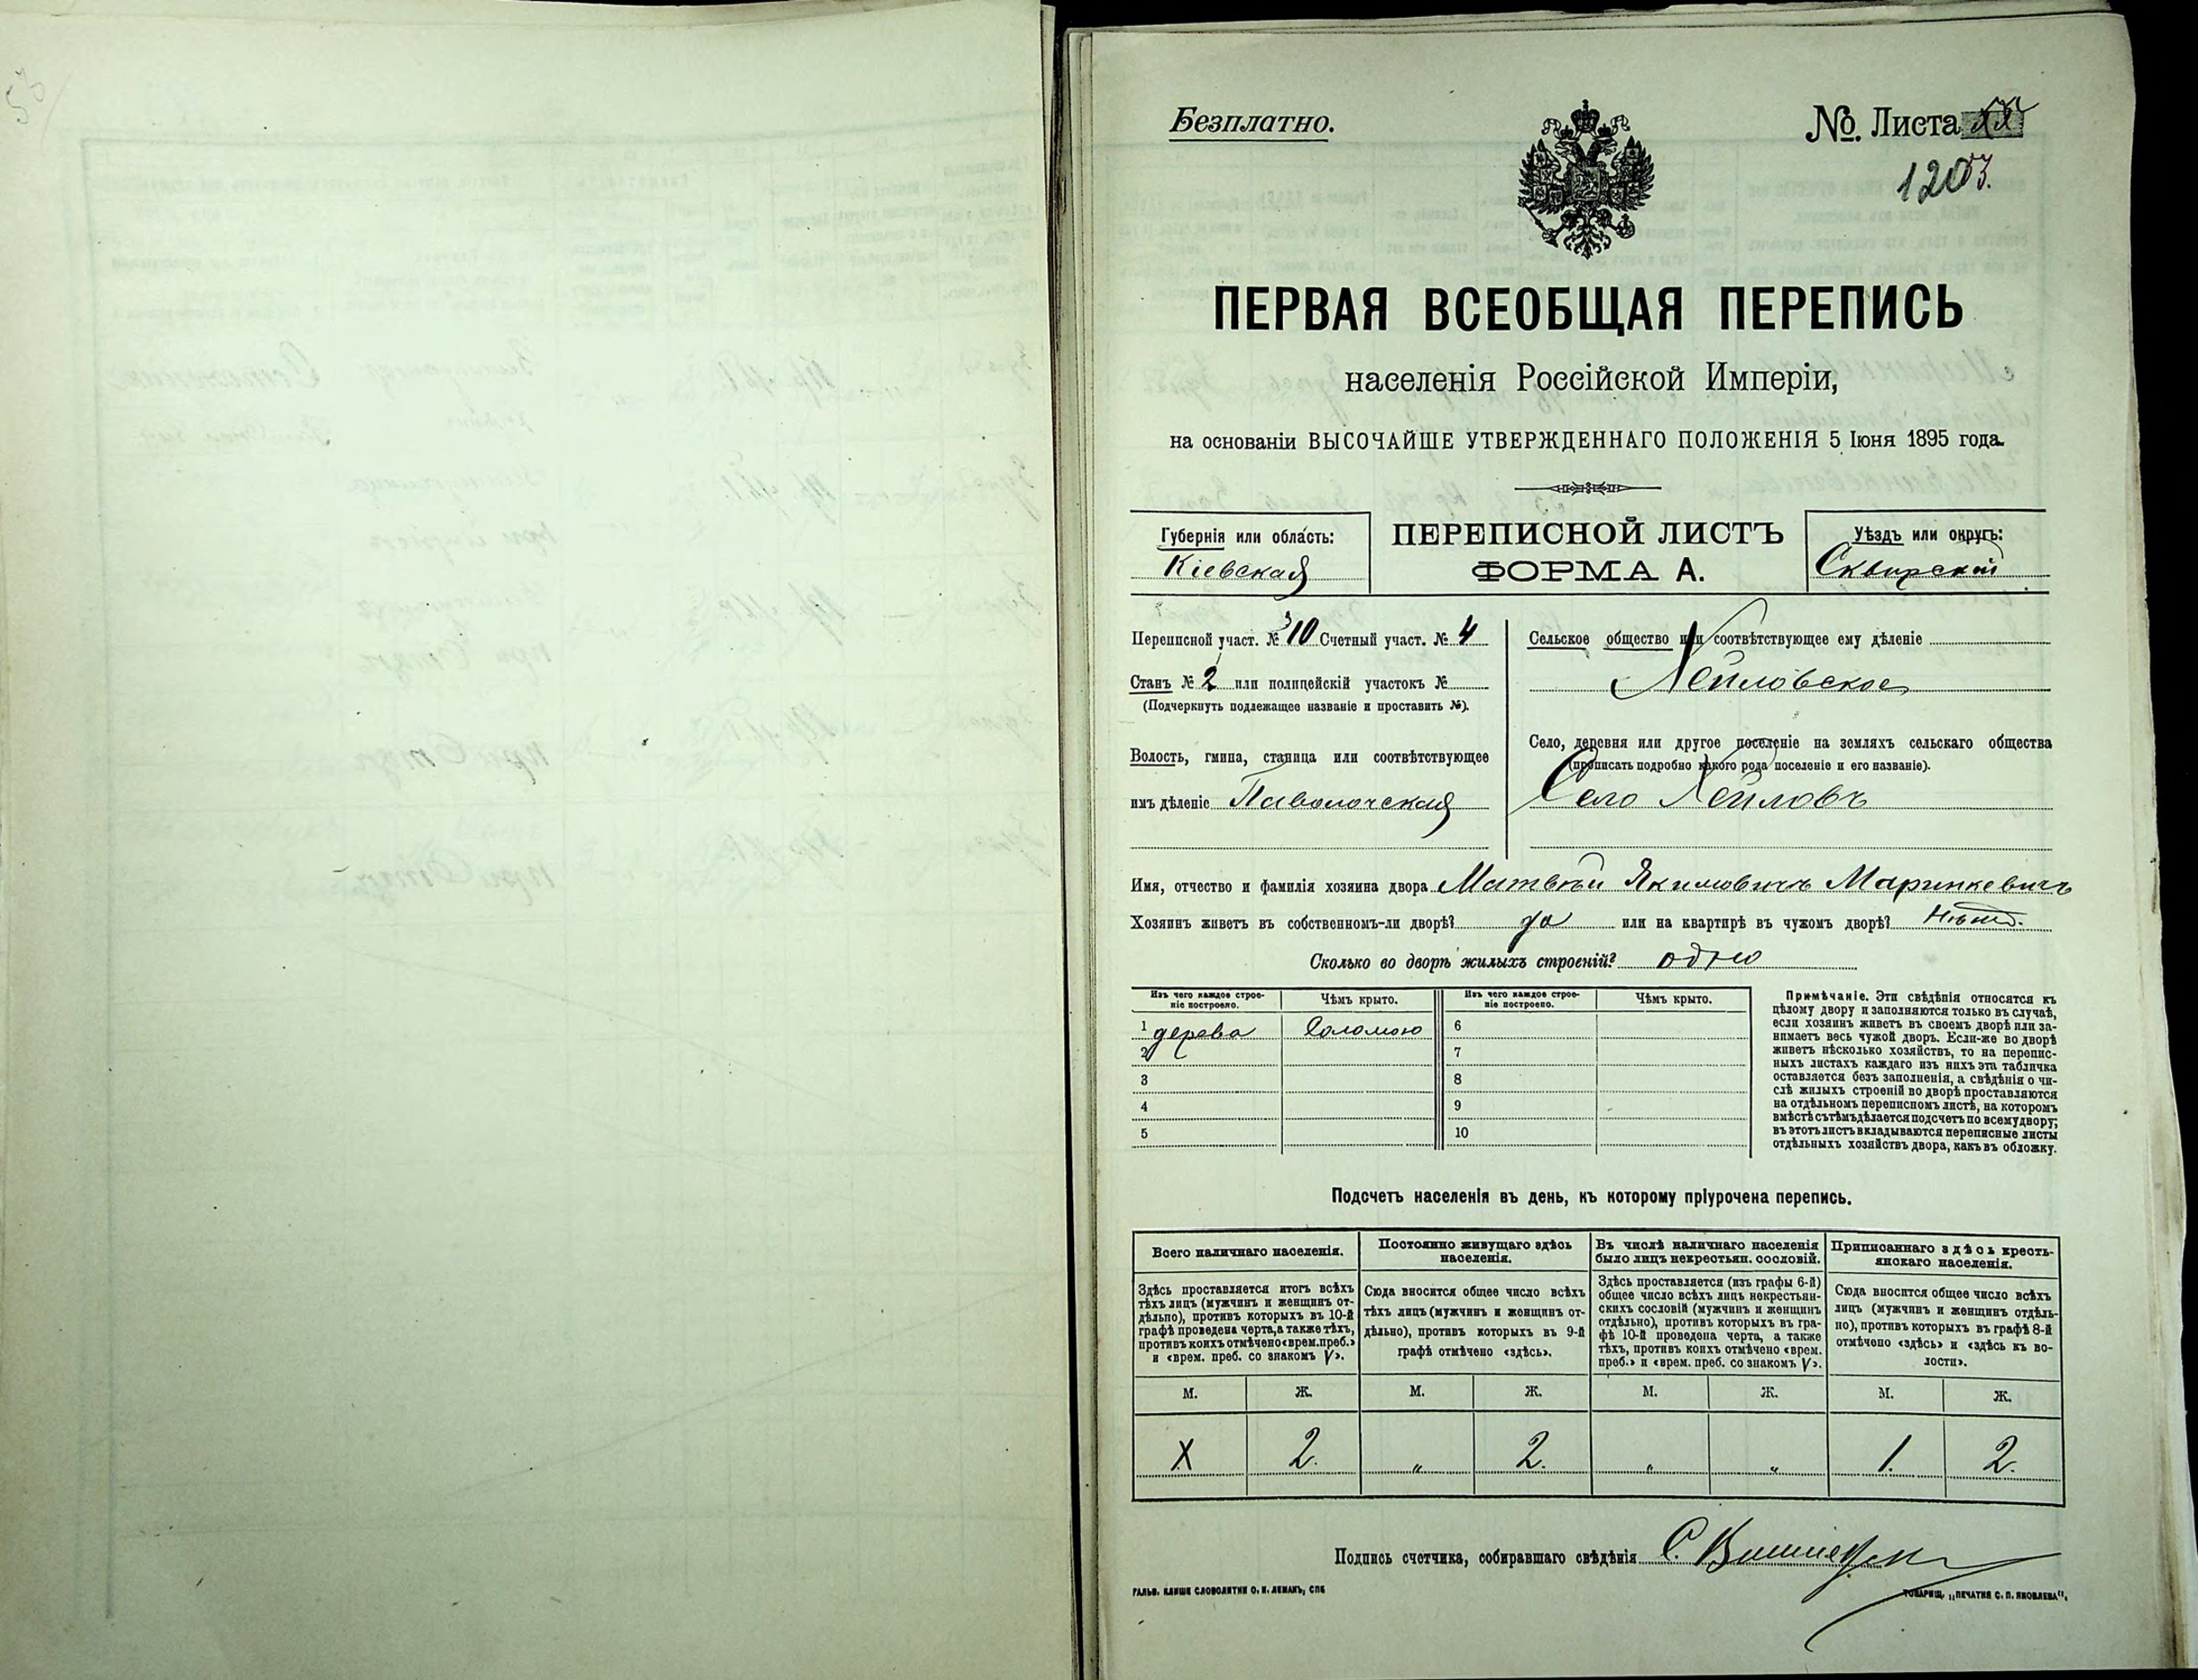 Безплатно.
№. Листа
ПЕРВАЯ ВСЕОБЩАЯ ПЕРЕПИСЬ
населенія Россійской Имперіи,
на основаніи ВЫСОЧАЙШЕ УТВЕРЖДЕННАГО ПОЛОЖЕНІЯ 5 Іюня 1895 года.
Губернія или область:
Кіевская
ПЕРЕПИСНОЙ ЛИСТЪ
ФОРМА А.
Уѣздъ или округъ:
Сквирскій
Переписной участ. № 10 Счетный участ. № 4
Станъ № 2 или полицейскій участокъ №
(Подчеркнуть подлежащее названіе и проставить №).
Волость, гмина, станица или соотвѣтствующее
имъ дѣленіе Паволочская
Сельское общество или соотвѣтствующее ему дѣленіе
Хейловское
Село, деревня или другое поселеніе на земляхъ сельскаго общества
(прописать подробно какого рода поселеніе и его названіе).
Село Хейловъ
Имя, отчество и фамилія хозяина двора Матвѣй Якимовичъ Маринкевичъ
Хозяинъ живетъ въ собственномъ-ли дворѣ? да или на квартирѣ въ чужомъ дворѣ? нѣтъ.
Сколько во дворѣ жилыхъ строеній? одно
Изъ чего каждое строе-
ніе построено.
Чѣмъ крыто.
Изъ чего каждое строе-
ніе построено.
Чѣмъ крыто.
1 дерева Соломою 6
2 7
3 8
4 9
5 10
Примѣчаніе. Эти свѣдѣнія относятся къ
цѣлому двору и заполняются только въ случаѣ,
если хозяинъ живетъ въ своемъ дворѣ или за-
нимаетъ весь чужой дворъ. Если-же во дворѣ
живетъ нѣсколько хозяйствъ, то на перепис-
ныхъ листахъ каждаго изъ нихъ эта табличка
оставляется безъ заполненія, а свѣдѣнія о чи-
слѣ жилыхъ строеній во дворѣ проставляются
на отдѣльномъ переписномъ листѣ, на которомъ
вмѣстѣ съ тѣмъ дѣлается подсчетъ по всему двору;
въ этотъ листъ вкладываются переписные листы
отдѣльныхъ хозяйствъ двора, какъ въ обложку.
Подсчетъ населенія въ день, къ которому пріурочена перепись.
Всего наличнаго населенія.
Здѣсь проставляется итогъ всѣхъ
тѣхъ лицъ (мужчинъ и женщинъ от-
дѣльно), противъ которыхъ въ 10-й
графѣ проведена черта, а также тѣхъ,
противъ коихъ отмѣчено «врем. преб.»
и «врем. преб. со знакомъ V».
Постоянно живущаго здѣсь
населенія.
Сюда вносится общее число всѣхъ
тѣхъ лицъ (мужчинъ и женщинъ от-
дѣльно), противъ которыхъ въ 9-й
графѣ отмѣчено «здѣсь».
Въ числѣ наличнаго населенія
было лицъ некрестьян. сословій.
Здѣсь проставляется (изъ графы 6-й)
общее число всѣхъ лицъ некрестьян-
скихъ сословій (мужчинъ и женщинъ
отдѣльно), противъ которыхъ въ гра-
фѣ 10-й проведена черта, а также
тѣхъ, противъ коихъ отмѣчено «врем.
преб.» и «врем. преб. со знакомъ V».
Приписаннаго здѣсь кресть-
янскаго населенія.
Сюда вносится общее число всѣхъ
лицъ (мужчинъ и женщинъ отдѣль-
но), противъ которыхъ въ графѣ 8-й
отмѣчено «здѣсь» и «здѣсь къ во-
лости».
М. Ж. М. Ж. М. Ж. М. Ж.
X 2. " 2. " " 1. 2.
Подпись счетчика, собиравшаго свѣдѣнія С.
ГАЛЬВ. КЛИШЕ СЛОВОЛИТНИ О. И. ЛЕМАНЪ, СПБ
ТОВАРИЩ. „ПЕЧАТНЯ С. П. ЯКОВЛЕВА",